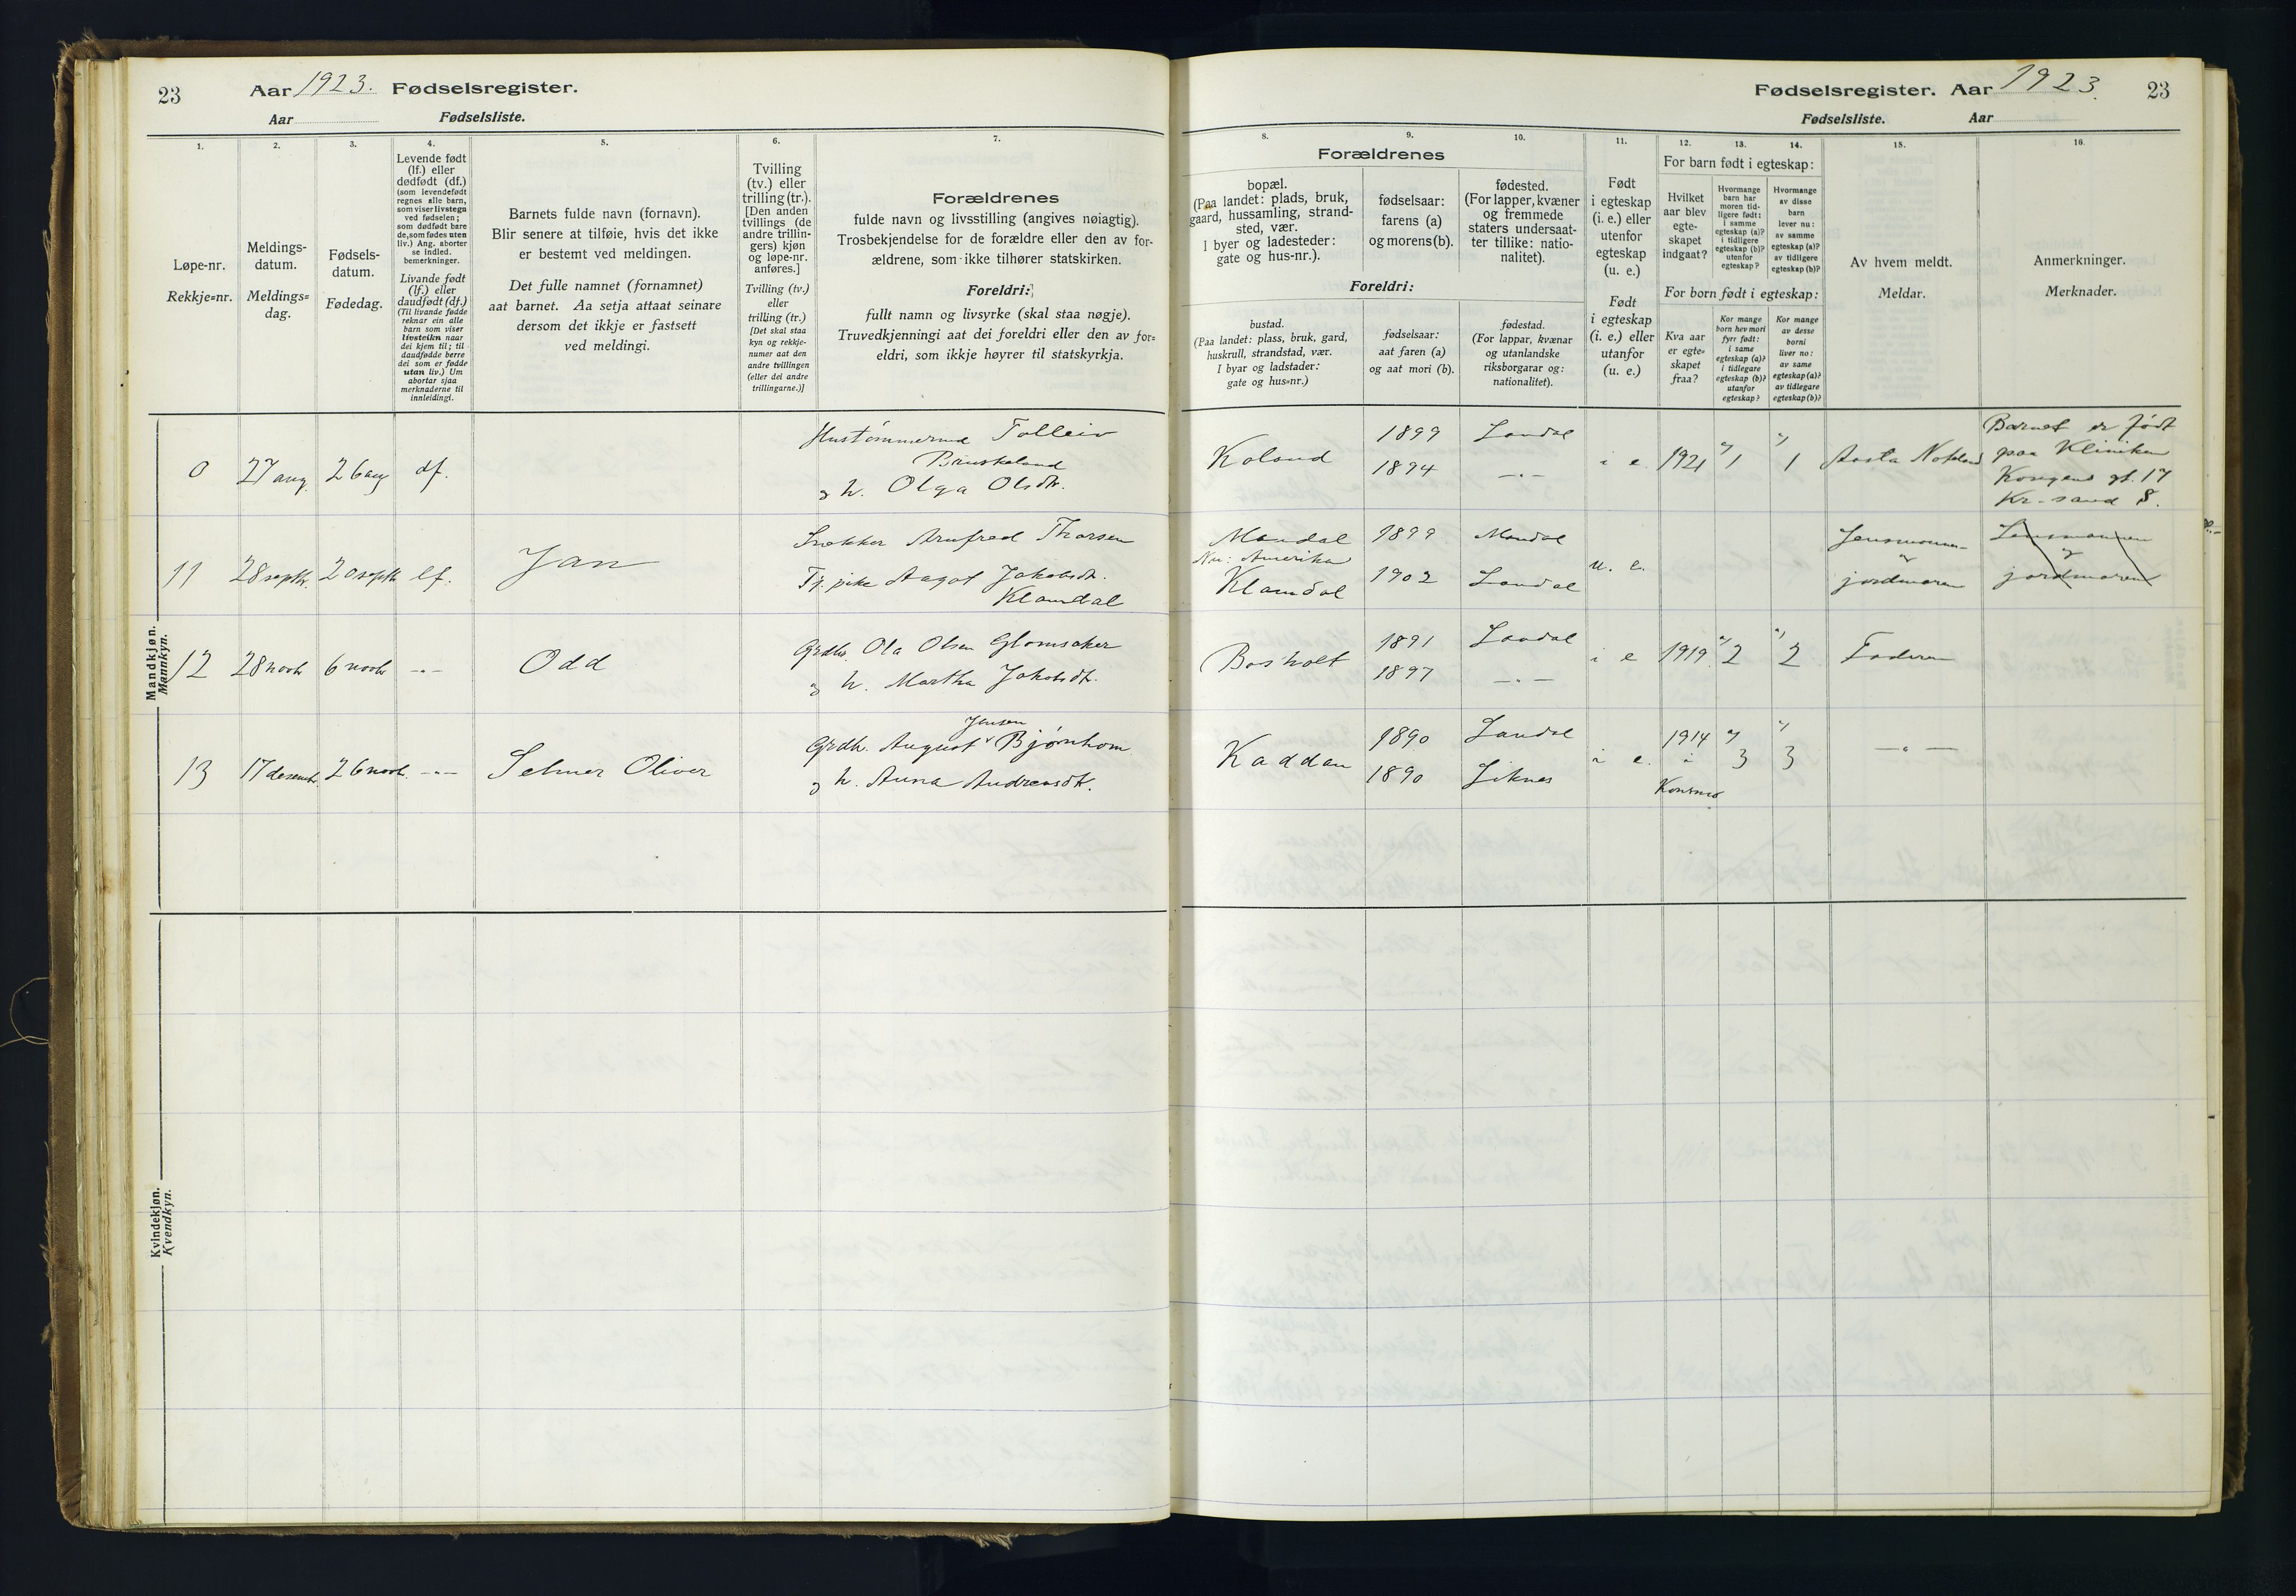 23
Aar 1923. Fødselsregister.
Aar
Fødselsliste.
1.
2.
3.
4.
5.
6.
7.
Løpe-nr.
Rekkje=nr.
Meldings-
datum.
Meldings=
dag.
Fødsels-
datum.
Fødedag.
Levende født
(lf.) eller
dødfødt (df.)
(som levendefødt
regnes alle barn,
som viser livstegn
ved fødselen;
som dødfødt bare
de, som fødes uten
liv.) Ang. aborter
se indled.
bemerkninger.
Livande født
(lf.) eller
daudfødt (df.)
(Til livande fødde
reknar ein alle
barn som viser
livsteikn naar
dei kjem til; til
daudfødde berre
dei som er fødde
utan liv.) Um
abortar sjaa
merknaderne til
innleidingi.
Barnets fulde navn (fornavn).
Blir senere at tilføie, hvis det ikke
er bestemt ved meldingen.
Det fulle namnet (fornamnet)
aat barnet. Aa setja attaat seinare
dersom det ikkje er fastsett
ved meldingi.
Tvilling
(tv.) eller
trilling (tr.).
[Den anden
tvillings (de
andre trillin-
gers) kjøn
og løpe-nr.
anføres.]
Tvilling (tv.)
eller
trilling (tr.)
[Det skal staa
kyn og rekkje-
numer aat den
andre tvillingen
(eller dei andre
trillingarne.)]
Forældrenes
fulde navn og livsstilling (angives nøiagtig).
Trosbekjendelse for de forældre eller den av for-
ældrene, som ikke tilhører statskirken.
Foreldri:
fullt namn og livsyrke (skal staa nøgje).
Truvedkjenningi aat dei foreldri eller den av for=
eldri, som ikkje høyrer til statskyrkja.
Mandkjøn.
Mannkyn.
0 27 aug. 26 aug df.
Tolleiv
Bruskeland
og h. Olga Olsdtr.
11 28 septbr. 20 septbr lf. Jan
Snekker Arnfred Thorsen
Tj. pike Aagot Jakobsdtr.
Klamdal
12 28 novbr 6 novbr -"- Odd
Grdbr. Ola Olsen Glomsaker
og h. Martha Jakobsdtr.
13 17 desembr. 26 novbr. -"- Selmer Oliver
Jensen
Grdbr. August Bjørnhom
og h. Anna Andreasdtr.
Kvindekjøn.
Kvendkyn.
Fødselsregister. Aar 1923.
23
Fødselsliste.
Aar
8.
9.
10.
11.
12.
13.
14.
15.
16.
Forældrenes
bopæl.
(Paa landet: plads, bruk,
gaard, hussamling, strand-
sted, vær.
I byer og ladesteder:
gate og hus-nr.).
fødselsaar:
farens (a)
og morens (b).
fødested.
(For lapper, kvæner
og fremmede
staters undersaat-
ter tillike: natio-
nalitet).
Foreldri:
bustad.
(Paa landet: plass, bruk, gard,
huskrull, strandstad, vær.
I byar og ladstader:
gate og hus=nr.)
fødselsaar:
aat faren (a)
og aat mori (b).
fødestad.
(For lappar, kvænar
og utanlandske
riksborgarar og:
nationalitet).
Født
i egteskap
(i. e.) eller
utenfor
egteskap
(u. e.)
Født
i egteskap
(i. e.) eller
utanfor
(u. e.)
For barn født i egteskap:
Hvilket
aar blev
egte-
skapet
indgaat?
Hvormange
barn har
moren tid-
ligere født:
i samme
egteskap (a)?
i tidligere
egteskap (b)?
utenfor
egteskap?
Hvormange
av disse
barn
lever nu:
av samme
egteskap (a)?
av tidligere
egteskap (b)?
For born født i egteskap:
Kva aar
er egte=
skapet
fraa?
Kor mange
born hev mori
fyrr født:
i same
egteskap (a)?
i tidlegare
egteskap (b)?
utanfor
egteskap?
Kor mange
av desse
borni
liver no:
av same
egteskap (a)?
av tidlegare
egteskap (b)?
Av hvem meldt.
Meldar.
Anmerkninger.
Merknader.
Koland 1899 Laudal
1894 -"-
i e. 1921 a) 1 a) 1
Barnet er født
paa Kliniken
Kongens gt. 17
Kr.sand S.
Mandal 1899 Mandal
Nu: Amerika
Klamdal 1902 Laudal
u. e.
Lensmannen
og
jordmoren
Lensmannen
og
jordmoren
Bosholt 1891 Laudal
1897 -"-
i e 1919 a) 2 a) 2 Faderen
Kaddan 1890 Laudal
1890 Liknes
i e. 1914 a) 3 a) 3 -"-
i
Konsmo